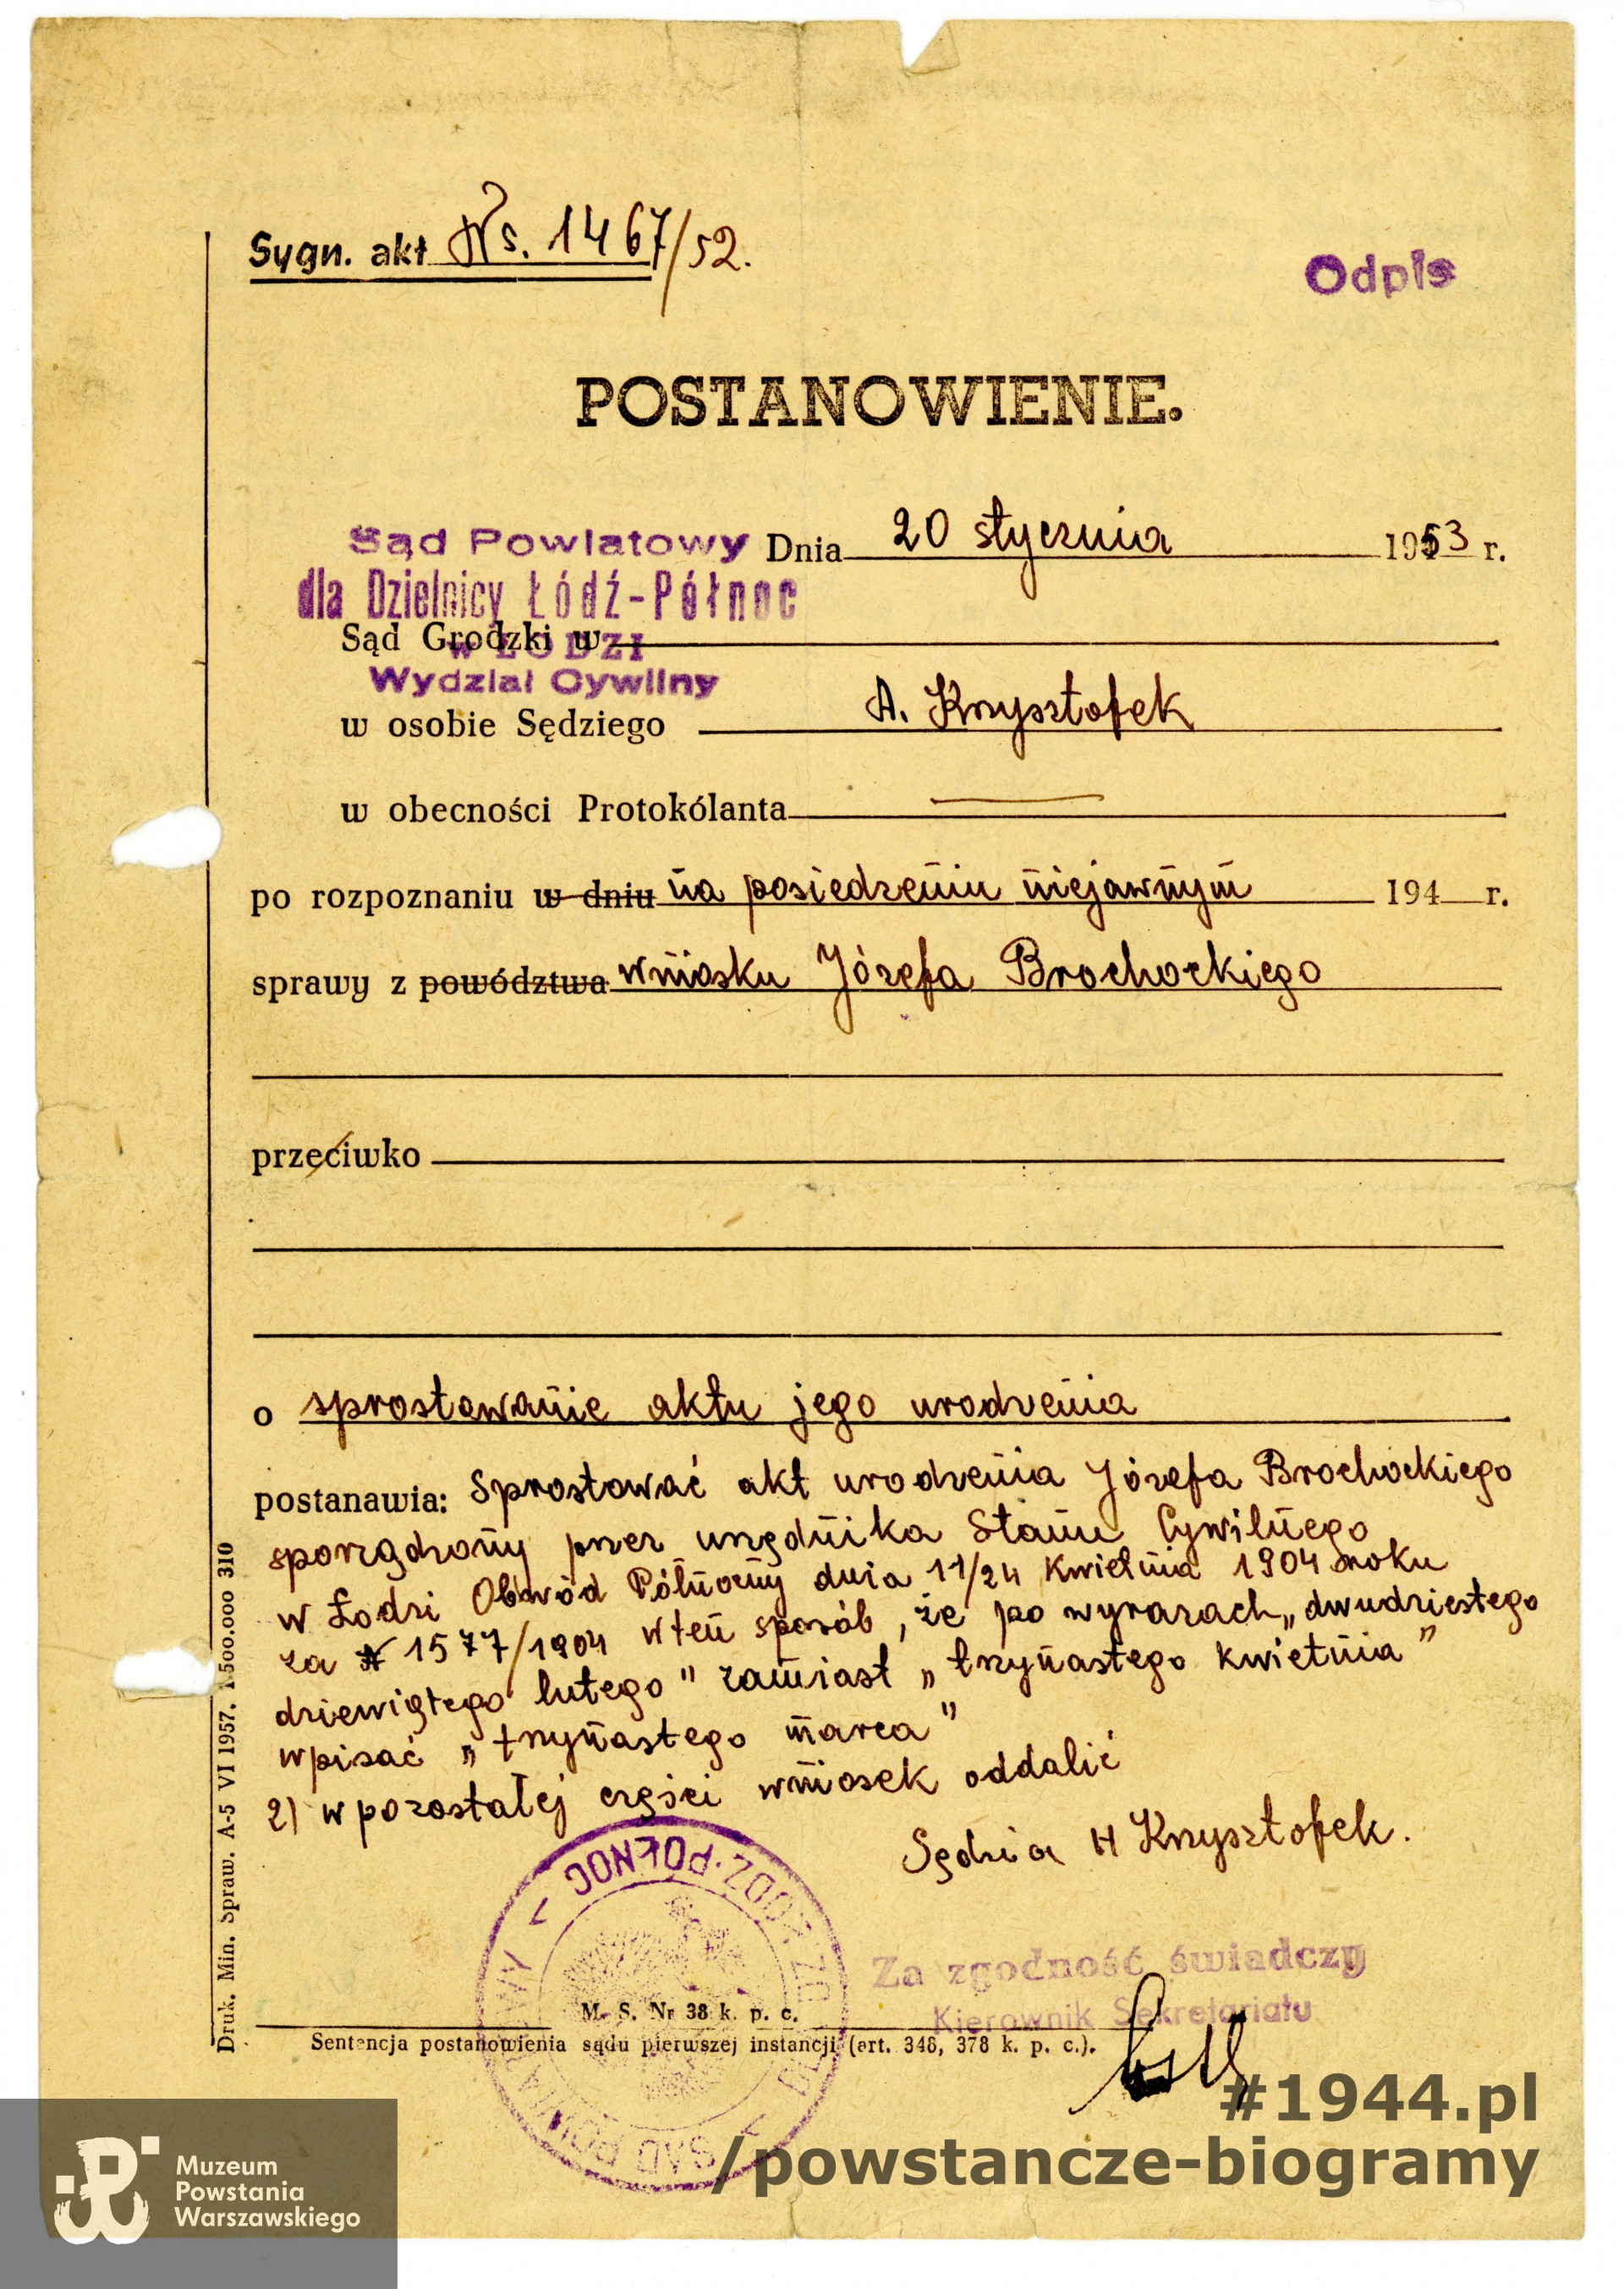 Sygn. akt Ns. 1467/52.
Odpis
POSTANOWIENIE.
Sąd Powiatowy Dnia 20 stycznia 1953 r.
dla Dzielnicy Łódź-Północ
Sąd Grodzki w
w ŁODZI
Wydział Cywilny
w osobie Sędziego A. Krzysztofek
w obecności Protokólanta
po rozpoznaniu w dniu na posiedzeniu niejawnym 194 r.
sprawy z powództwa wniosku Józefa Brochockiego
przeciwko
o sprostowanie aktu jego urodzenia
postanawia: Sprostować akt urodzenia Józefa Brochockiego
sporządzony przez urzędnika Stanu Cywilnego
w Łodzi Obwód Północny dnia 11/24 kwietnia 1904 roku
za N 1577/1904 w ten sposób, że po wyrazach „dwudziestego
dziewiątego lutego" zamiast „trzynastego kwietnia"
wpisać „trzynastego marca"
2) w pozostałej części wniosek oddalić
Sędzia H Krzysztofek.
SĄD POWIATOWY DLA DZ. ŁÓDŹ-PÓŁNOC
Za zgodność świadczy
Kierownik Sekretariatu
M. S. Nr 38 k. p. c.
Sentencja postanowienia sądu pierwszej instancji (art. 348, 378 k. p. c.).
Druk. Min. Spraw. A-5 VI 1957. 1500.000 310
#1944.pl
/powstancze-biogramy
Muzeum
Powstania
Warszawskiego